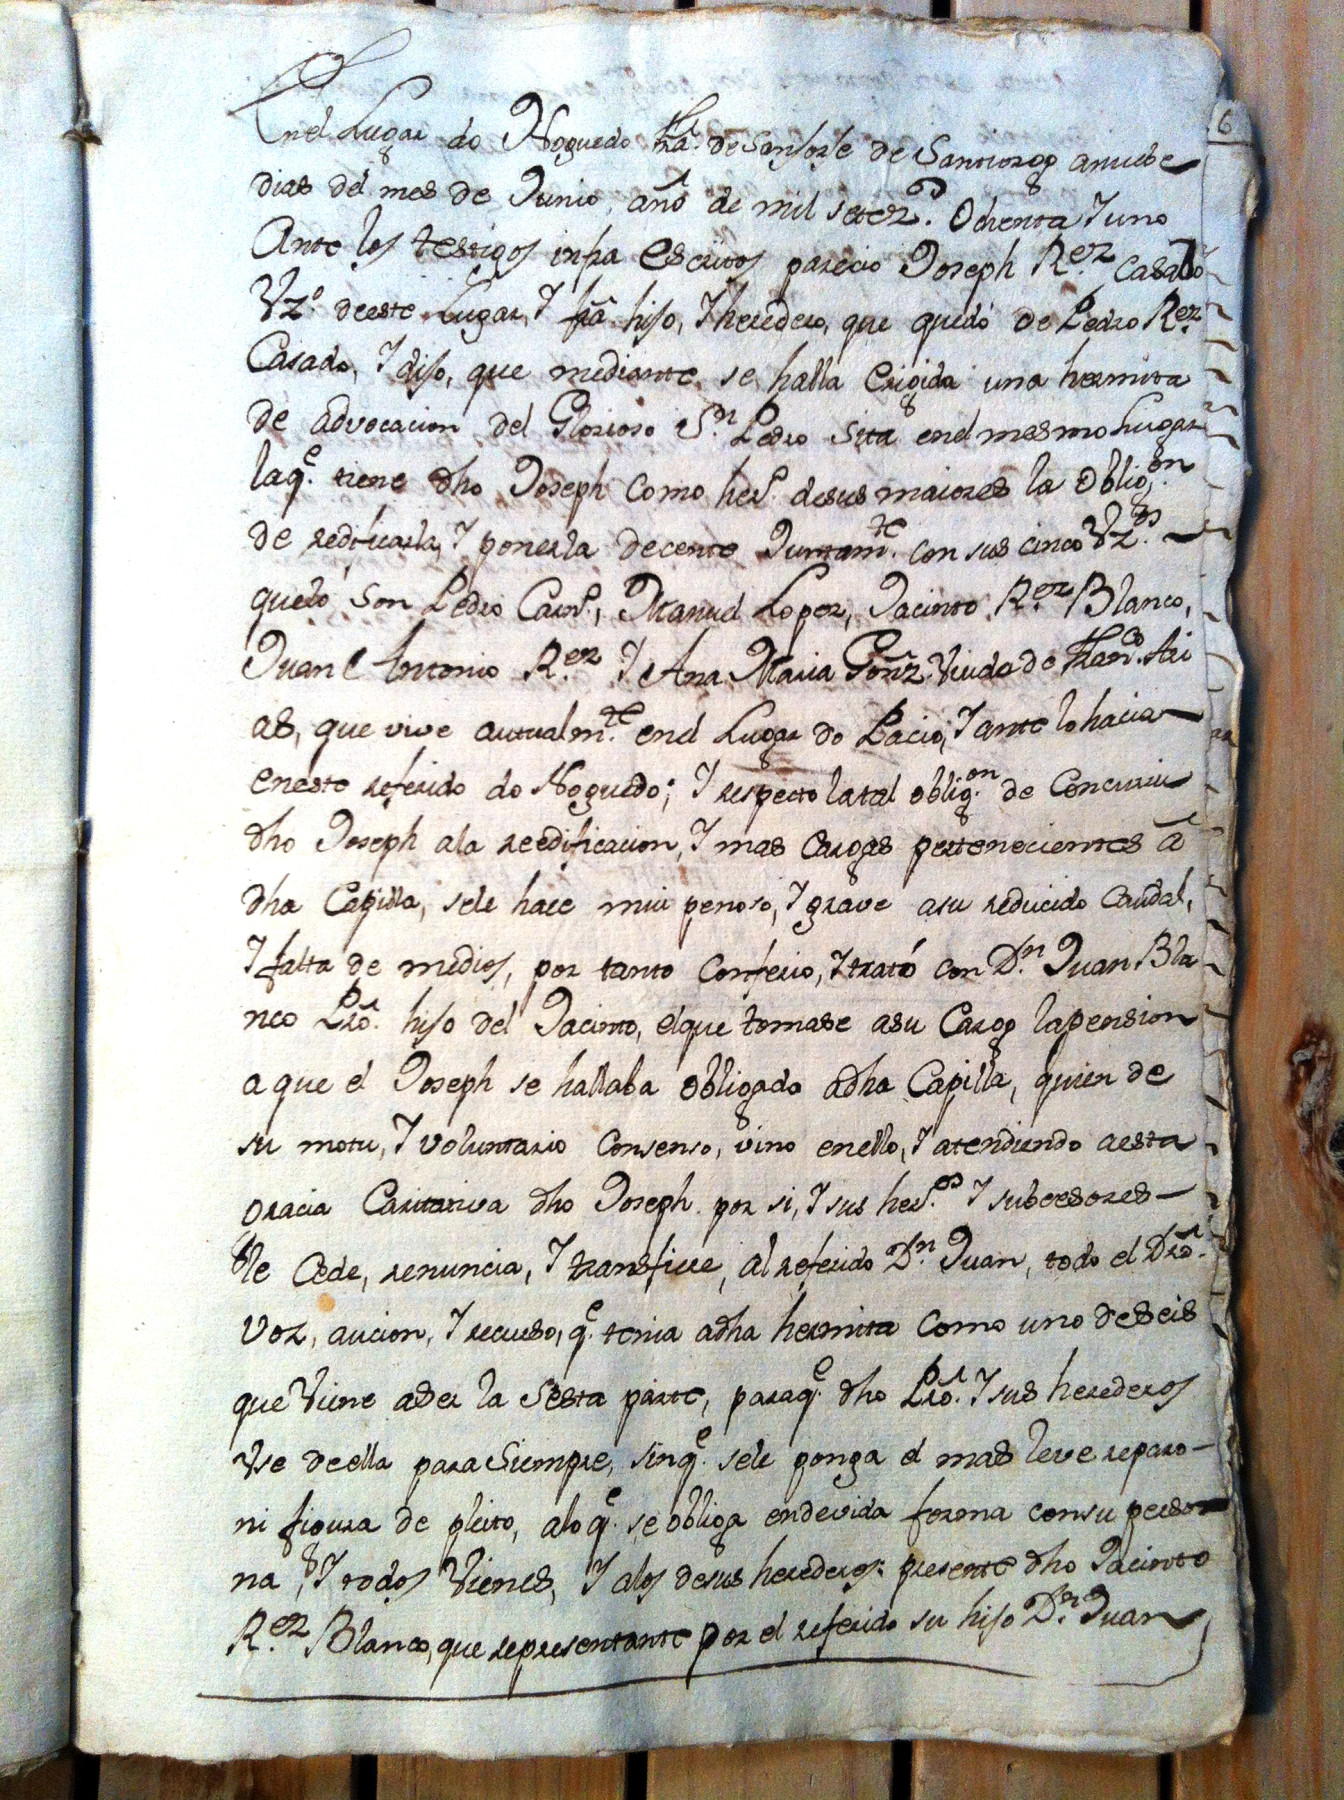 6
Enel Lugar do Noguedo fra. de San Jorge de Santiorjo a nuebe
dias del mes de Junio, año de mil setez.s Ochenta Y uno
Ante los testigos infra escritos parecio Joseph R.ez Casado
Vz.o deeste Lugar, Y hijo, Y heredero, que quedó de Pedro R.ez
Casado, Y dijo, que mediante se halla Erigida una hermita
de advocacion del Glorioso S.n Pedro Sita enel mesmo Lugar
laq.e tiene dho Joseph Como her.o desus maiores la Oblig.on
de redificarla, Y ponerla decente Juntam.te con sus cinco Vz.os
quelo Son Pedro Manuel Lopez, Jacinto R.ez Blanco,
Juan Antonio R.ez Y Ana Maria Gonz. Viuda de Fran.co Ari
as, que vive autualm.te enel Lugar do Pacio, Y ante lo hacia
eneste referido do Noguedo; Y respecto la tal oblig.on de Concurrir
dho Joseph ala reedificacion, Y mas Cargas pertenecientes á
dha Capilla, sele hace mui penoso, Y grave asu reducido Caudal,
Y falta de medios, por tanto Confirio, Y trató con D.n Juan Bla
nco Pro. hijo del Jacinto, elque tomase asu Cargo lapension
a que el Joseph se hallaba obligado adha Capilla, quien de
su motu, Y voluntario Consenso, vino enello, Y atendiendo aesta
gracia Caritativa dho Joseph por si, Y sus her.os Y subcesores
le Cede, renuncia, Y transfiere, al referido D.n Juan, todo el Dro.
voz, aucion, Y recurso, q.e tenia adha hermita Como uno deseis
que Viene aser la Sesta parte, paraq.e dho Pro. Y sus herederos
Use deella para Siempre, sinq.e sele ponga el mas leve reparo
ni figura de pleito, alo q.e se obliga endevida forma consu perso
na, Y todos Vienes, Y alos desus herederos: presente dho Jacinto
R.ez Blanco, que representante por el referido su hijo D.n Juan